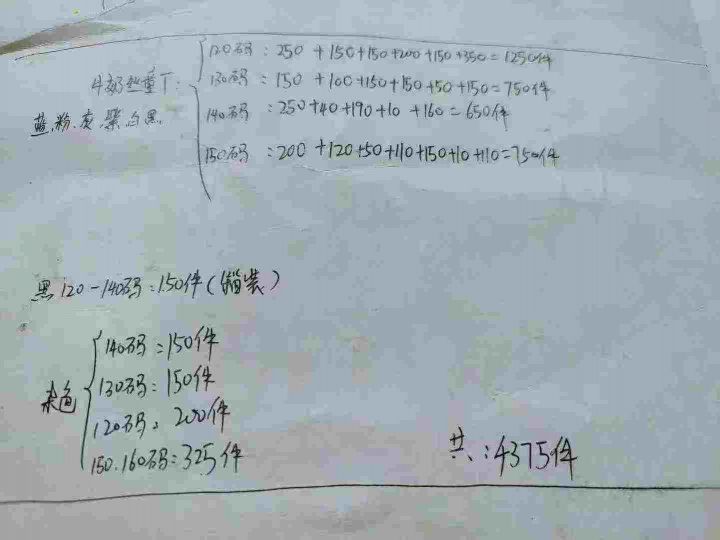 120码:250+150+150+200+150+350=1250件
牛奶丝童T:
130码:150+100+150+150+50+150=750件
蓝、粉、灰、紫、白、黑.
140码:250+40+190+10+160=650件
150码:200+120+50+110+150+10+110=750件
黑120-140码:150件(箱装)
140码:150件
130码:150件
杂色
120码:200件
150.160码:325件
共:4375件